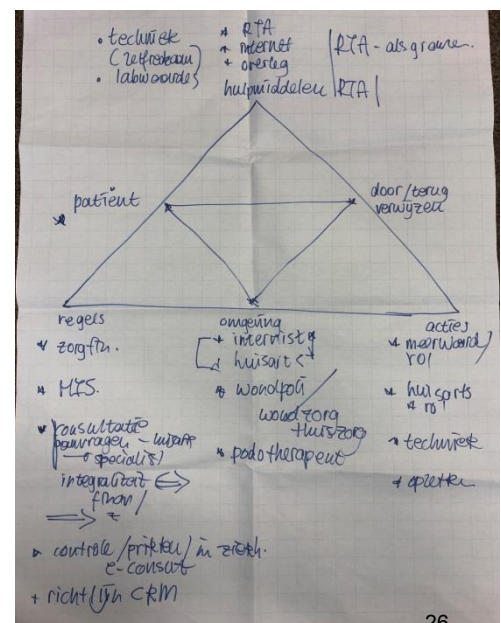 • techniek
(zelfredzaam)
• labwaardes
* RTA
* internet
* overleg
hulpmiddelen
RTA - als grouwe.
RTA
* patiënt
door/terug
verwijzen
regels
* zorgfin.
* MTS.
* consultatie
aanvragen - huisarts
→ specialist
integraliteit
finan/
* controle/prikken/in ziekh.
e-consult
+ richtlijn CRM
omgeving
* internist
* huisarts
* wondpoli
wondzorg
thuiszorg
* podotherapeut
acties
* meerwaard/
rol
* huisarts
* rol
* techniek
* opletten
26